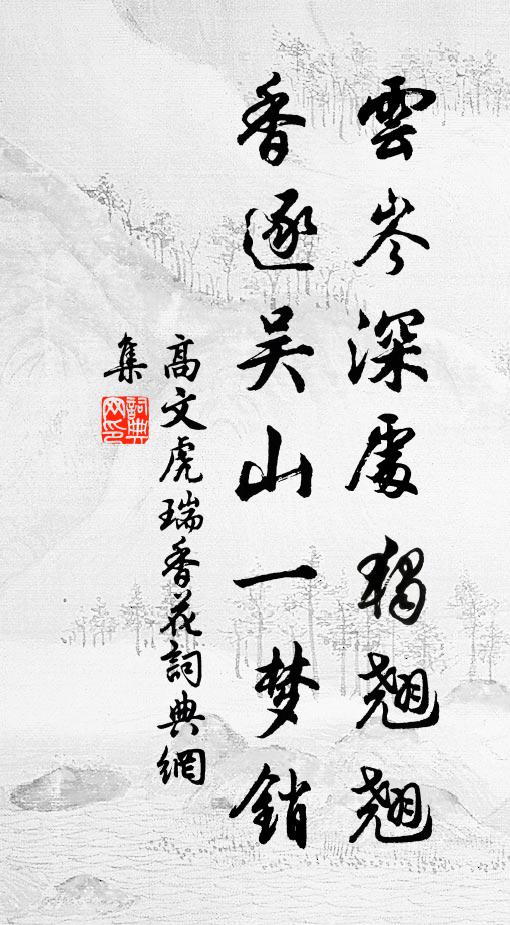 雲岑深處獨翹翹
香逐吴山一梦銷
高文虎瑞香花詞典網
集
詞典
网印